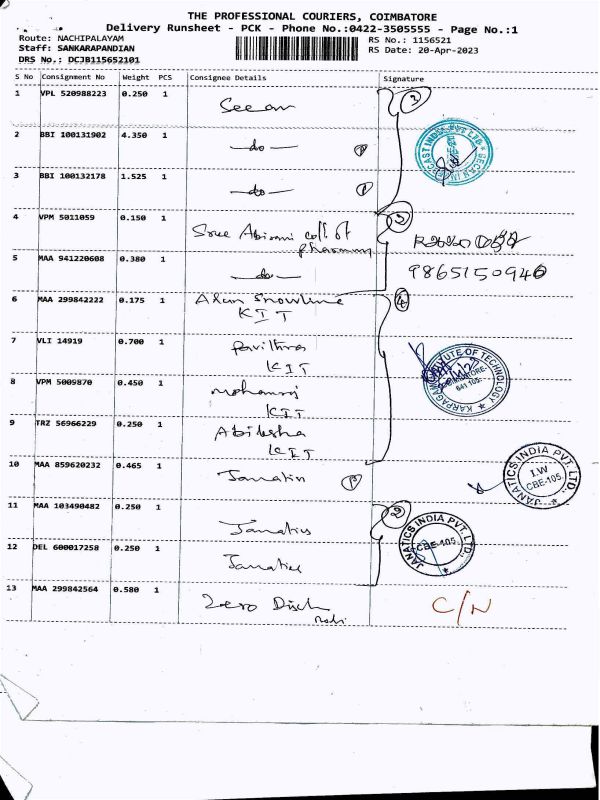 THE PROFESSIONAL COURIERS, COIMBATORE
Delivery Runsheet - PCK - Phone No.:0422-3505555 - Page No.:1
Route: NACHIPALAYAM
RS No.: 1156521
Staff: SANKARAPANDIAN
RS Date: 20-Apr-2023
DRS No.: DCJB115652101
S No Consignment No Weight PCS Consignee Details Signature
1 VPL 520988223 0.250 1 3
2 BBI 100131902 4.350 1 -do-
3 BBI 100132178 1.525 1 -do-
4 VPM 5011059 0.150 1 Sree Abirami coll of
pharmacy
5 MAA 941220608 0.380 1 -do- 9865150940
6 MAA 299842222 0.175 1 Arun Snowline 4
KIT
7 VLI 14919 0.700 1 Pavithra
KIT
KARPAGAM INSTITUTE OF TECHNOLOGY
COIMBATORE-
641 105.
8 VPM 5009870 0.450 1 Mohanraj
KIT
9 TRZ 56966229 0.250 1 Abiksha
KIT
10 MAA 859620232 0.465 1 Janatics
JANATICS INDIA PVT. LTD.
I.W
CBE-105
11 MAA 103490482 0.250 1 Janatics 2
12 DEL 600017258 0.250 1 Janatics
JANATICS INDIA PVT. LTD.
CBE-105
13 MAA 299842564 0.580 1 Zero Disch C/N